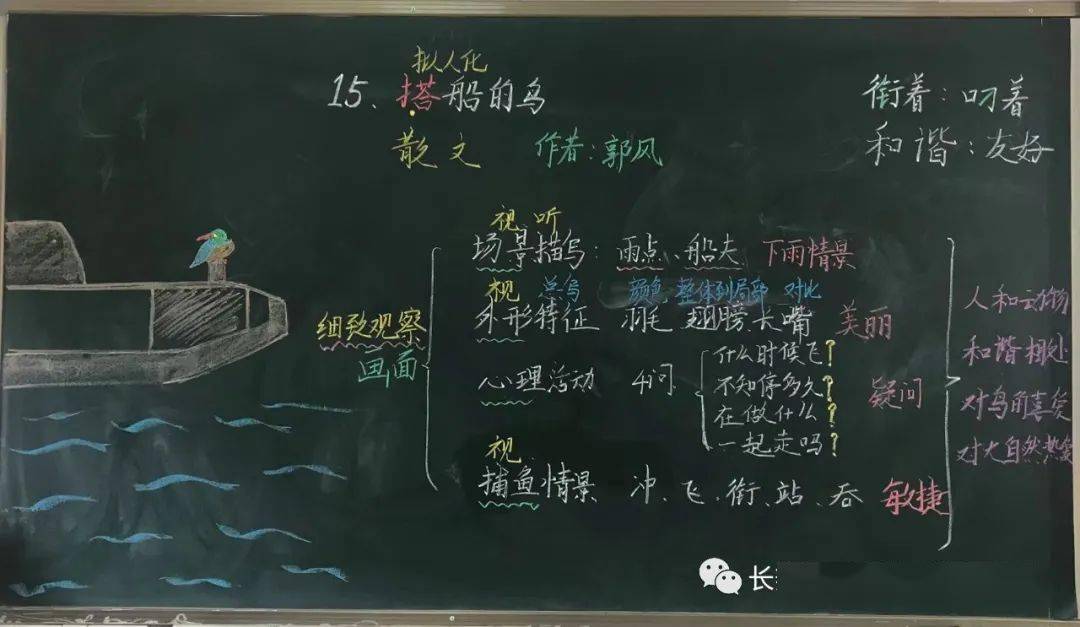 拟人化
15、搭船的鸟
散文 作者:郭风
衔着:叼着
和谐:友好
细致观察
画面
视 听
场景描写:雨点、船夫 下雨情景
视 总写 颜色 整体到局部 对比
外形特征 羽毛 翅膀 长嘴 美丽
心理活动 4问
什么时候飞?
不知停多久?
在做什么?
一起走吗?
疑问
视
捕鱼情景 冲、飞、衔、站、吞 敏捷
人和动物
和谐相处
对鸟的喜爱
对大自然热爱
长